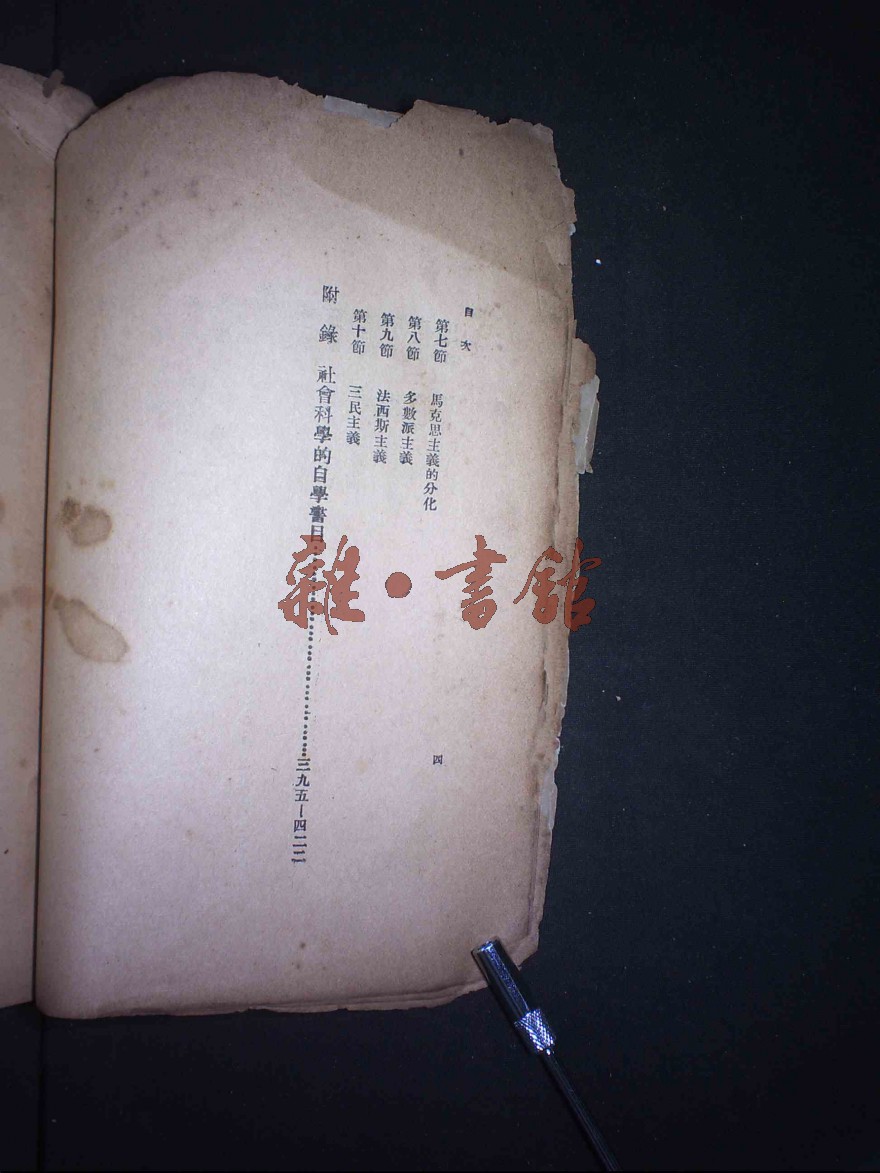 目次
第七節 馬克思主義的分化
第八節 多數派主義
第九節 法西斯主義
第十節 三民主義
附錄 社會科學的自學書目……………………三九五—四二二
四
雜·書館